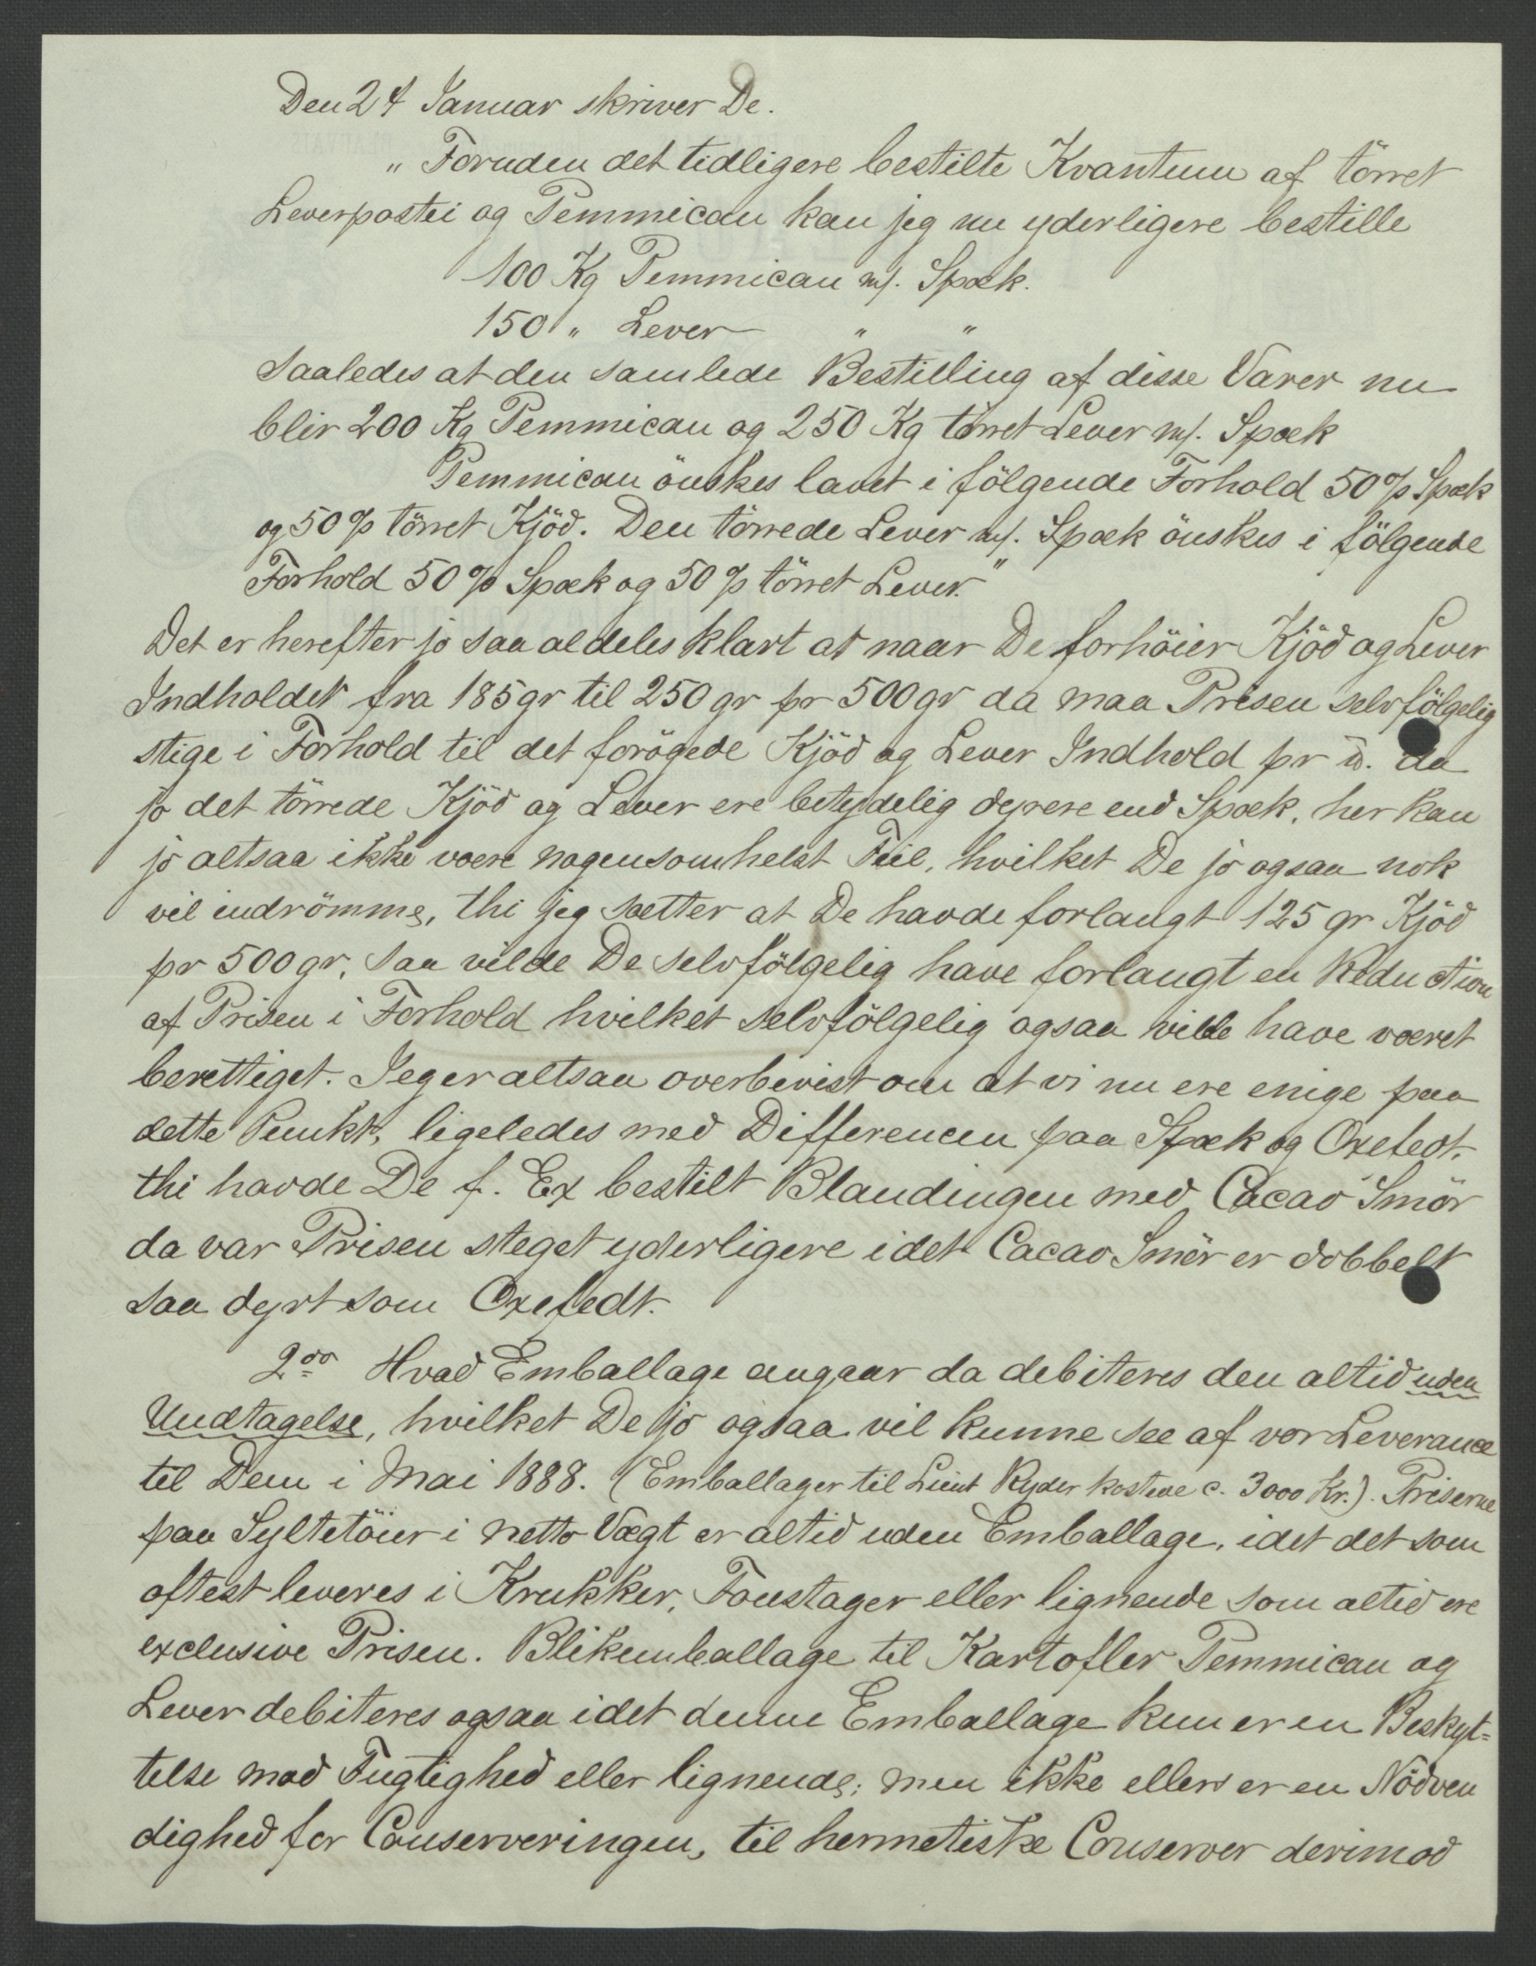 Den 24 Januar skriver De.
„ Foruden det tidligere bestilte Kvantum af törret
Leverpostei og Pemmican kan jeg nu yderligere bestille
100 Kg Pemmican m/. Spæk.
150 „ Lever „ „
saaledes at den samlede Bestilling af disse Varer nu
blir 200 Kg Pemmican og 250 Kg törret Lever m/. Spæk
Pemmican önskes lavet i fölgende Forhold 50 % Spæk
og 50 % törret Kjöd. Den törrede Lever m/. Spæk önskes i fölgende
Forhold 50 % Spæk og 50 % törret Lever."
Det er herefter jo saa aldeles klart at naar De forhöier Kjöd og Lever
Indholdet fra 185 gr til 250 gr pr 500 gr da maa Prisen selvfölgelig
stige i Forhold til det forögede Kjöd og Lever Indhold pr da
jo det törrede Kjöd og Lever ere betydelig dyrere end Spæk, her kan
jo altsaa ikke være nogensomhelst Feil, hvilket De jo ogsaa nok
vil indrömme, thi jeg sætter at De havde forlangt 125 gr Kjöd
pr 500 gr, saa vilde De selvfölgelig have forlangt en Reduction
af Prisen i Forhold hvilket selvfölgelig ogsaa vilde have været
berettiget. Jeg er altsaa overbevist om at vi nu ere enige paa
dette Punkt, ligeledes med Differencen paa Spæk og Oxefedt.
thi havde De f. Ex bestilt Blandingen med Cacao Smör
da var Prisen steget yderligere idet Cacao Smör er dobbelt
saa dyrt som Oxefedt.
2do Hvad Emballage angaar da debiteres den altid uden
Undtagelse, hvilket De jo ogsaa vil kunne see af vor Leverance
til Dem i Mai 1888. (Emballager til Lieut Ryder kostede c. 3000 Kr.). Priserne
paa Syltetöier i netto Vægt er altid uden Emballage, idet det som
oftest leveres i Krukker, Foustager eller lignende som altid ere
exclusive Prisen. Blikemballage til Kartofler Pemmican og
Lever debiteres ogsaa idet denne Emballage kun er en Beskyt=
telse mod Fugtighed eller lignende; men ikke ellers er en Nödven
dighed for Conserveringen, til hermetiske Conserver derimod